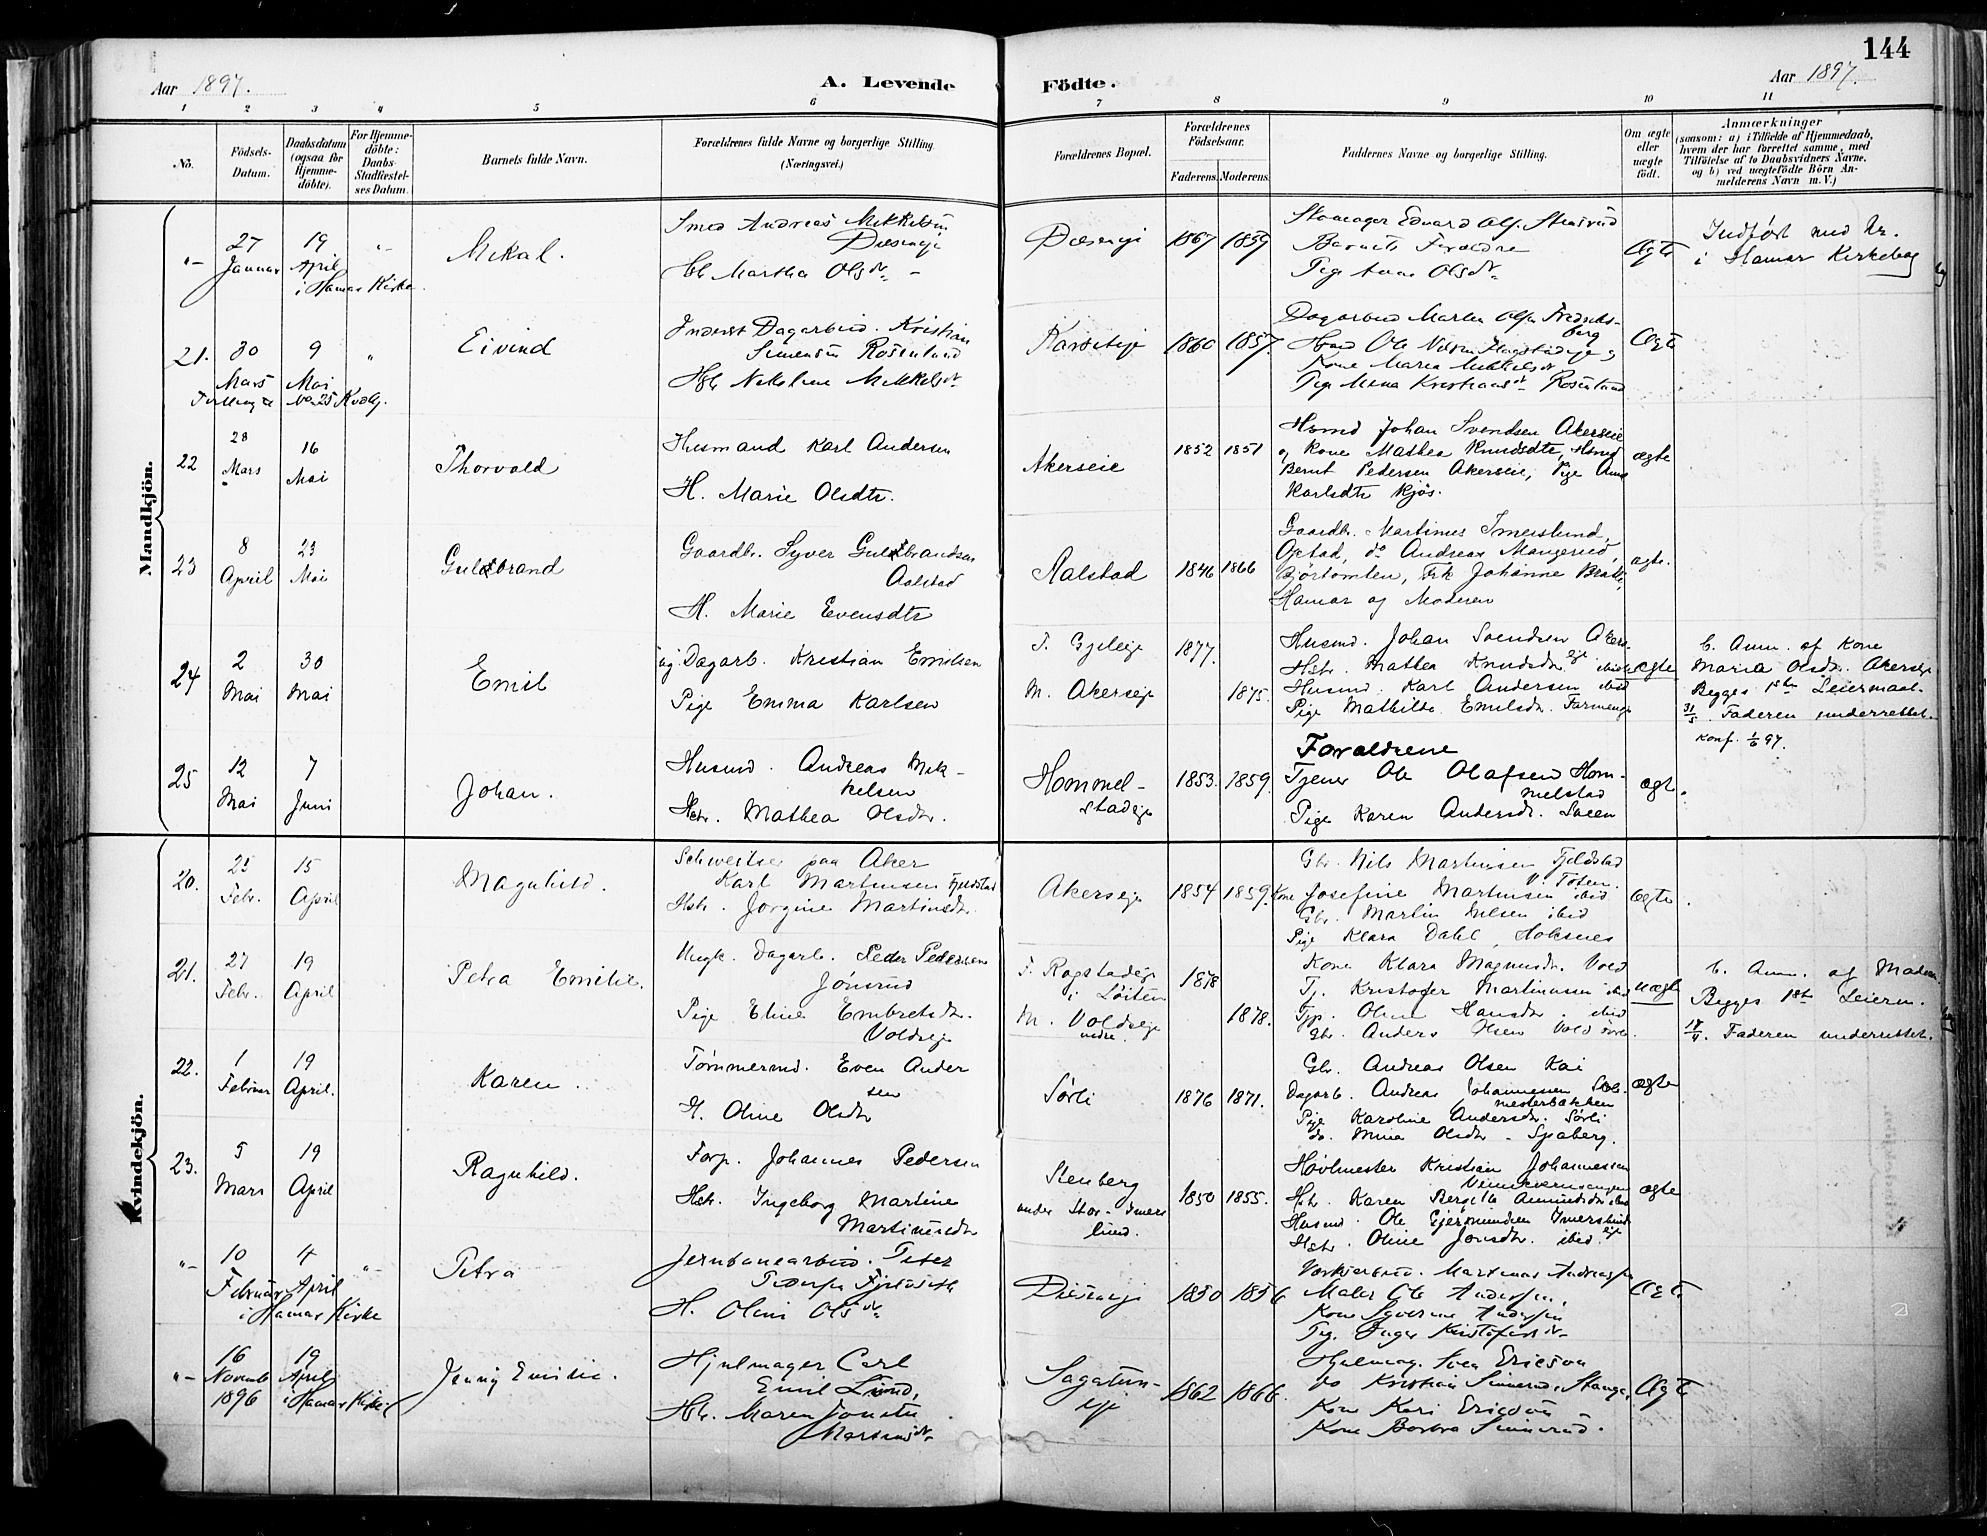 144
Aar 1897.
A. Levende
Födte.
Aar 1897.
1 2 3 4 5 6 7 8 9 10 11
No.
Födsels-
Datum.
Daabsdatum
(ogsaa for
Hjemme-
döbte).
For Hjemme-
döbte:
Daabs-
Stadfæstel-
ses Datum.
Barnets fulde Navn.
Forældrenes fulde Navne og borgerlige Stilling
(Næringsvei.)
Forældrenes Bopæl.
Forældrenes
Födselsaar.
Faderens.
Moderens.
Faddernes Navne og borgerlige Stilling.
Om ægte
eller
uægte
födt.
Anmærkninger
(saasom: a) i Tilfælde af Hjemmedaab,
hvem der har forrettet samme, med
Tilföielse af to Daabsvidners Navne,
og b) ved uægtefödte Börn An-
melderens Navn m. V.)
Mandkjön.
"-
27
Januar
19
April
i Hamar Kirke.
"-
Mikal.
Smed Andreas Mikkelsen
Diseneje
Martha Olsdtr.
Diseneje
1867
1859
Skomager Edvard Olsen Stensrud
Barnets Forældre
Pige Anne Olsdtr.
Ægte
Indført med Nr.
i Hamar Kirkebog
21.
30
Mars
9
Mai
"
Eivind
Inderst Dagarbeid. Kristian
Simensen Rosenlund
Hstr Nikoline Mikkelsdtr
1860
1857.
Dagarbeid Martin Olsen Fredriks-
berg
Husmd Ole Nilsen
Kone Maria Mikkelsdtr
Pige Mina Kristiansdtr Rosenlund
Ægte
22
28
Mars
16
Mai
Thorvald
Husmand Karl Andersen
H. Marie Olsdtr.
Akerseie
1852
1851
Hsmd Johan Svendsen Akerseie
og Kone Mathea Knudsdtr, Hsmd
Bernt Pedersen Akerseie, Pige Anne
Karlsdtr Kjös.
ægte
23
8
April
23
Mai
Guldbrand
Gaardbr. Syver Guldbrandsen
Aalstad
H. Marie Evensdtr
Aalstad
1846
1866
Gaardbr. Martinus Imerslund,
Opstad, do Andreas Mangerud,
Björtomten, Frk Johanne Bratli,
Hamar og Moderen
ægte.
24
2
Mai
30
Mai
Emil
Ug. Dagarb. Kristian Emilsen
Pige Emma Karlsen
F. Gjeleje
M. Akerseje
1877.
1875.
Husmd. Johan Svendsen Akers-
eje
Hstr. Mathea Knudsdtr. ibid
Husmd. Karl Andersen ibid
Pige Mathilde Emilsdtr. Farmenge
uægte
b. Anm. af Kone
Maria Olsdtr. Akerseje
Begges 1ste Leiermaal.
31/5. Faderen underrettet.
Konf. 1/6 97.
25
12
Mai
7
Juni
Johan.
Husmd. Andreas Mik-
kelsen
Hstr. Mathea Olsdtr.
Hommel-
stadeje
1853.
1859.
Forældrene
Tjener Ole Olafsen Hom-
melstad
Pige Karen Andersdtr. Sveen
ægte.
Kvindekjön.
20.
25
Febr.
15
April
Magnhild.
Schweitser paa Aker
Karl Martinsen Fjeldstad
Hstr. Jörgine Martinsdtr.
Akerseje
1854
1859.
Gbr. Nils Martinsen Fjeldstad
V. Toten.
Kone Josefine Martinsen ibid
Gbr. Martin Nilsen ibid
Pige Klara Dahl, Hoksnes
ægte
21.
27
Febr.
19
April
Petra Emilie.
Ungk. Dagarb. Peder Pedersen
Jönsrud
Pige Eline Embretsdtr.
Voldseje
F. Rogstadeje
i Löiten
M. Voldseje
nedre.
1878
1878.
Kone Klara Magnusdtr. Vold
Tj. Kristofer Martinusen ibid
Tjp. Oline Hansdtr. ibid
Gbr. Anders Olsen Vold
uægte
b. Anm. af Moderen
Begges 1ste Leierm.
Faderen underrettet.
22.
1
Februar
19
April.
Karen.
Tömmermd. Even Ander
sen
H. Oline Olsdtr
Sörli
1876
1871.
Gbr. Andreas Olsen Kai
Dagarb. Andreas Johannessen
mesterbakken
Pige Karoline Andersdtr. Sörli
do. Mina Olsdtr. Sjoberg.
ægte
23.
5
Mars
19
April
Ragnhild.
Forp. Johannes Pedersen
Hstr. Ingeborg Martine
Martinusdtr
Stenberg
under Stor-Imers
lund.
1850
1855.
Hövlmester Kristian Johannessen
Hstr. Karen Bergitte Amundsdtr ibid
Husmd. Ole Gjermundsen Imerslund
eje
Hstr. Oline Jonsdtr. ibid
ægte
"-
10
Februar
4
April
i Hamar Kirke
"-
Petra
Jernbanearbeid. Peter
Pedersen
H. Oline Olsdtr
Diseneje
1850
1856
Værksarbeid. Martinus Andreassen
Maler Ole Andersen,
Kone Syverine Andersen
Pige Inger Kristofersdtr
Ægte
"-
16
Novemb
1896
19
April
i Hamar Kirke
Jenny Emilie.
Hjulmager Carl
Emil Lund,
Hstr. Maren Jonette
Martinsdtr
Sagatun-
eje
1862
1866.
Hjulmag. Sven Ericson
do Kristian Simerud, Stange,
Kone Kari Ericson
Kone Barbra Simerud.
Ægte